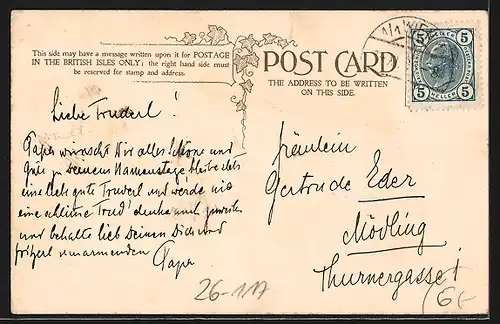 This side may have a message written upon it for POSTAGE
IN THE BRITISH ISLES ONLY; the right hand side must
be reserved for stamp and address.
POST CARD
THE ADDRESS TO BE WRITTEN
ON THIS SIDE.
5 5
HELLER
5 5
Liebe Truderl!
Papa wünscht Dir alles Schöne und
Gute zu Deinem Namenstage, bleibe stets
eine lieb gute Truderl und werde nie
eine schlimme Trud' denke mich zuweilen
und behalte lieb Deinen Dich und
umarmenden
Papa
Fräulein
Gertrude Eder
Mödling
Thurnergasse 1
26-117
6.-